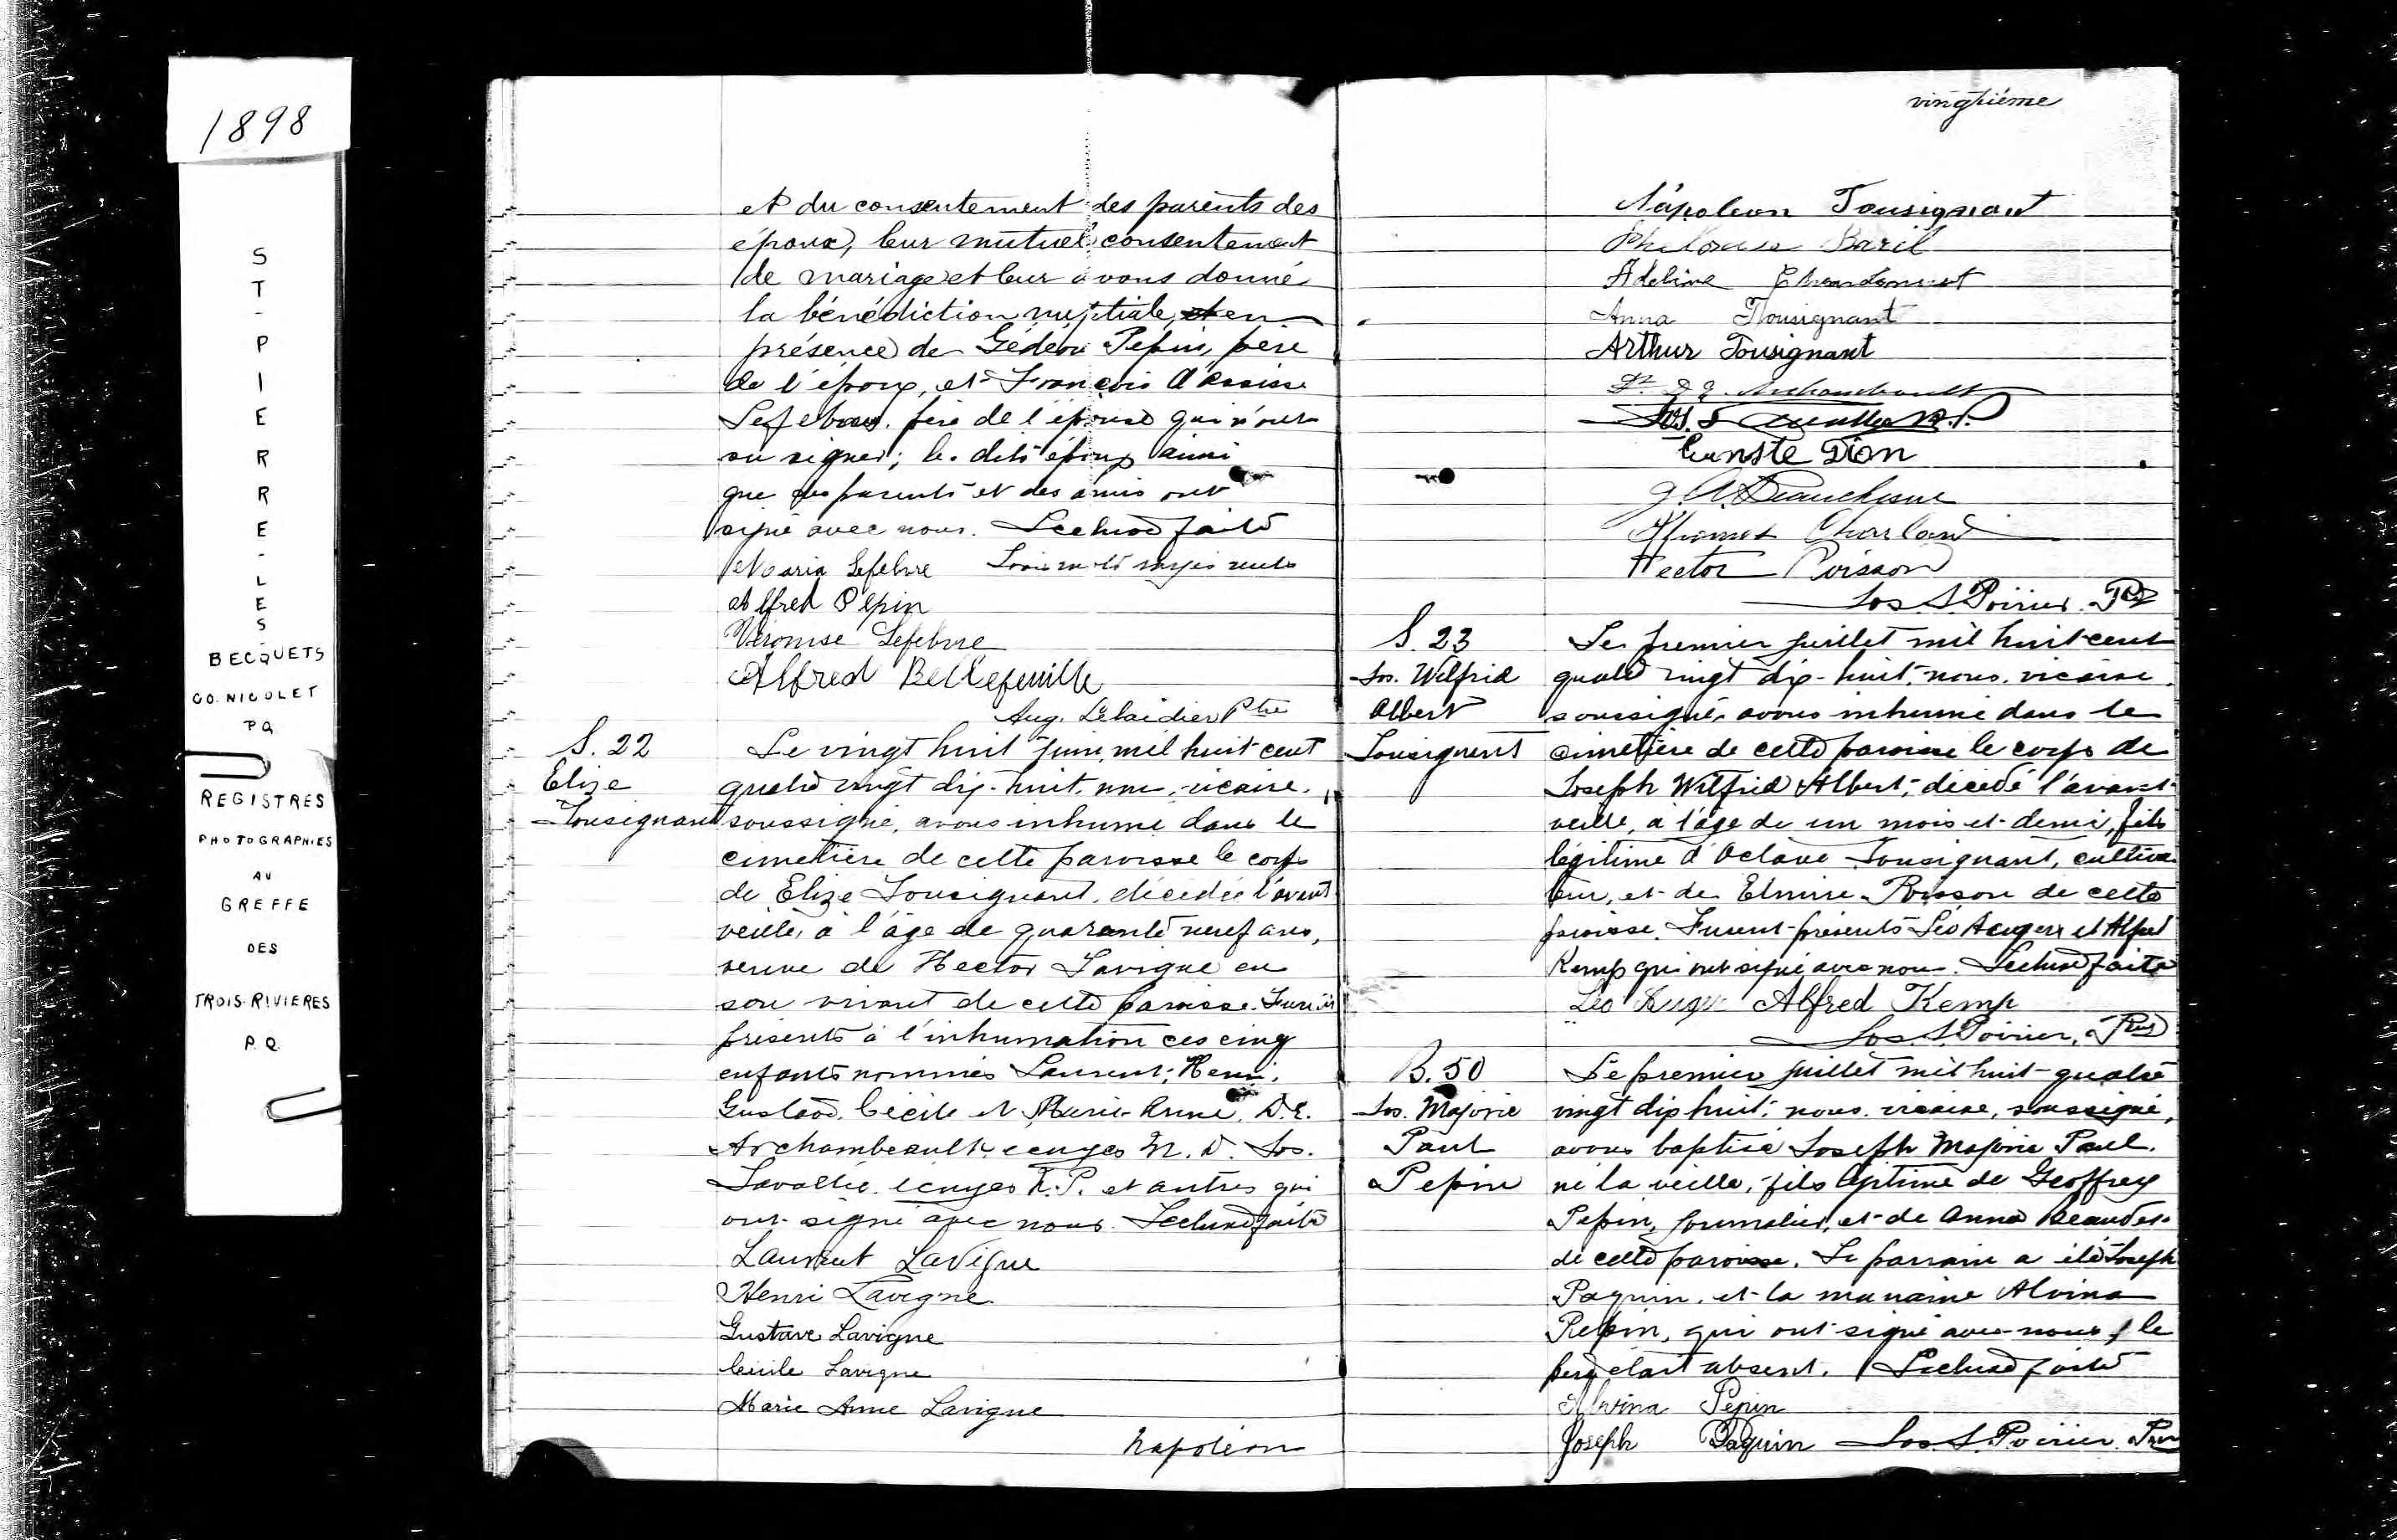 1898
ST-PIERRE-LES-
BECQUETS
CO. NICOLET
P Q
REGISTRES
PHOTOGRAPHIES
AU
GREFFE
DES
TROIS-RIVIERES
P. Q.
et du consentement des parents des
époux, leur mutuel consentement
de mariage et leur avons donné
la bénédiction nuptiale, en
présence de Gédéon Pepin, père
de l'époux, et François d'Assise
Lefebvre, père de l'épouse qui n'ont
su signer; les dits époux ainsi
que des parents et des amis ont
signé avec nous. Lecture faite
Maria Lefebvre
Alfred Pépin
Lefebvre
Alfred Bellefeuille
Aug. Lelaidier Ptre
S. 22
Elize
Tousignant
Le vingt huit juin, mil huit cent
quatre vingt dix-huit, nous, vicaire,
soussigné, avons inhumé dans le
cimetière de cette paroisse le corps
de Elize Tousignant, décédée l'avant
veille, à l'âge de quarante neuf ans,
veuve de Hector Lavigne en
son vivant de cette paroisse. Furent
présents à l'inhumation ces cinq
enfants nommés Laurent, Henri,
Gustave, Cécile et Marie-Anne, D. E.
Archambeault, écuyer M. D. Jos.
Lavallée, écuyer N. P. et autres qui
ont signé avec nous. Lecture faite
Laurent Lavigne
Henri Lavigne
Gustave Lavigne
Cécile Lavigne
Marie Anne Lavigne
Napoléon
vingtième
Napoleon Tousignant
Baril
Adeline Chandonnet
Anna Tousignant
Arthur Tousignant
Dr D E Archambault
N.P.
Dion
J. A. Beauchesne
Thomas Charland
Hector Poisson
Jos. S. Poirier, Ptre
S. 23
Jos. Wilfrid
Albert
Tousignant
Le premier juillet mil huit cent
quatre vingt dix-huit, nous, vicaire
soussigné, avons inhumé dans le
cimetière de cette paroisse le corps de
Joseph Wilfrid Albert, décédé l'avant-
veille, à l'âge de un mois et demi, fils
légitime d'Octave Tousignant, cultiva-
teur, et de Elmire Poisson de cette
paroisse. Furent présents Léo Augers et Alfred
Kemp qui ont signé avec nous. Lecture faite
Léo Auger Alfred Kemp
Jos. S. Poirier, Ptre
B. 50
Jos. Majorie
Paul
Pepin
Le premier juillet mil huit-quatre
vingt dix huit, nous, vicaire, soussigné,
avons baptisé Joseph Majorie Paul,
né la veille, fils légitime de Geoffrey
Pepin, journalier, et de Anna Beaudet
de cette paroisse. Le parrain a été Joseph
Paquin, et la marraine Alvina
Pepin, qui ont signé avec nous, le
père était absent. Lecture faite
Alvina Pepin
Joseph Paquin Jos. S. Poirier Ptre